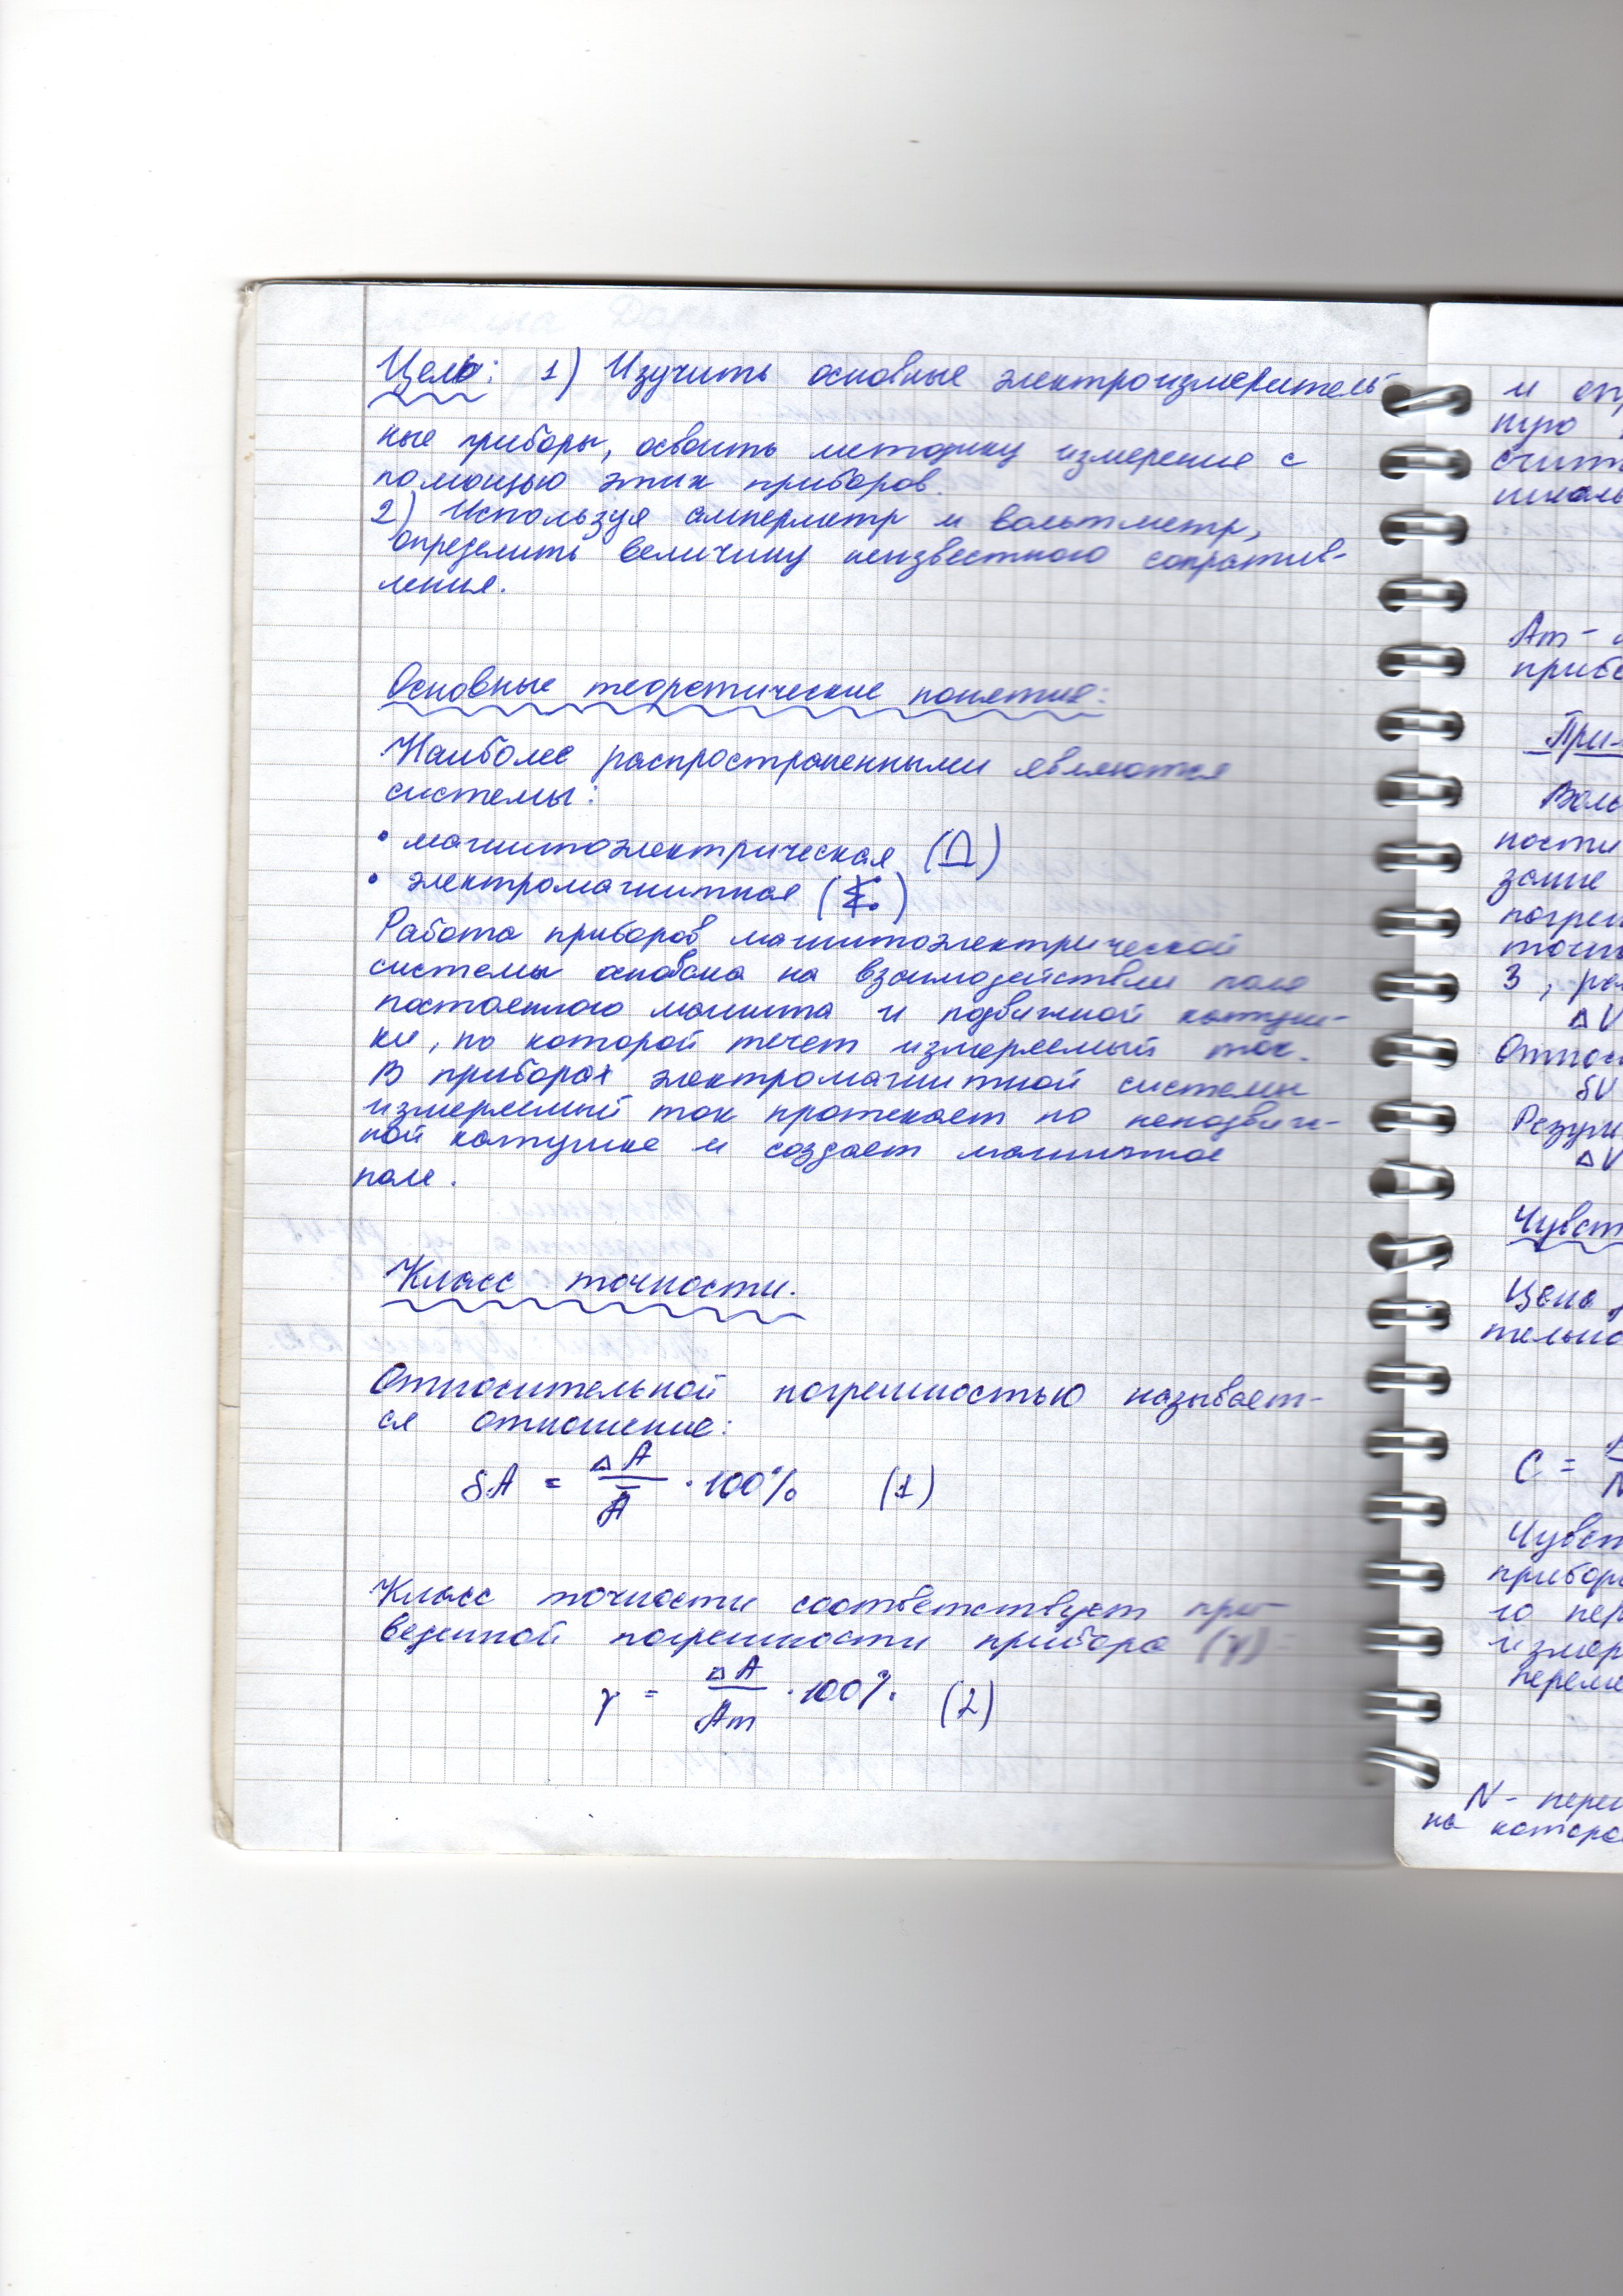 Цель: 1) Изучить основные электроизмеритель-
ные приборы, освоить методику измерение с
помощью этих приборов.
2) Используя амперметр и вольтметр,
определить величину неизвестного сопротив-
ления.
Основные теоретические понятия:
Наиболее распространенными являются
системы:
• магнитоэлектрическая ( )
• электромагнитная ( )
Работа приборов магнитоэлектрической
системы основана на взаимодействии поля
постоянного магнита и подвижной катуш-
ки, по которой течет измеряемый ток.
В приборах электромагнитной системы
измеряемый ток протекает по неподвиж-
ной катушке и создает магнитное
поле.
Класс точности.
Относительной погрешностью называет-
ся отношение:
δA = ΔA / Ā · 100% (1)
Класс точности соответствует при-
веденной погрешности прибора (γ)
γ = ΔA / Am · 100% (2)
и
пую
счит
Am -
приб
При-
Воль
ности
погреш
точн
3, ра
ΔV
Относ
δV
Резуль
ΔV
Чувст
Цена
тельно
C =
N
Чувст
прибор
го пер
измер
переме
N - пере
на которо